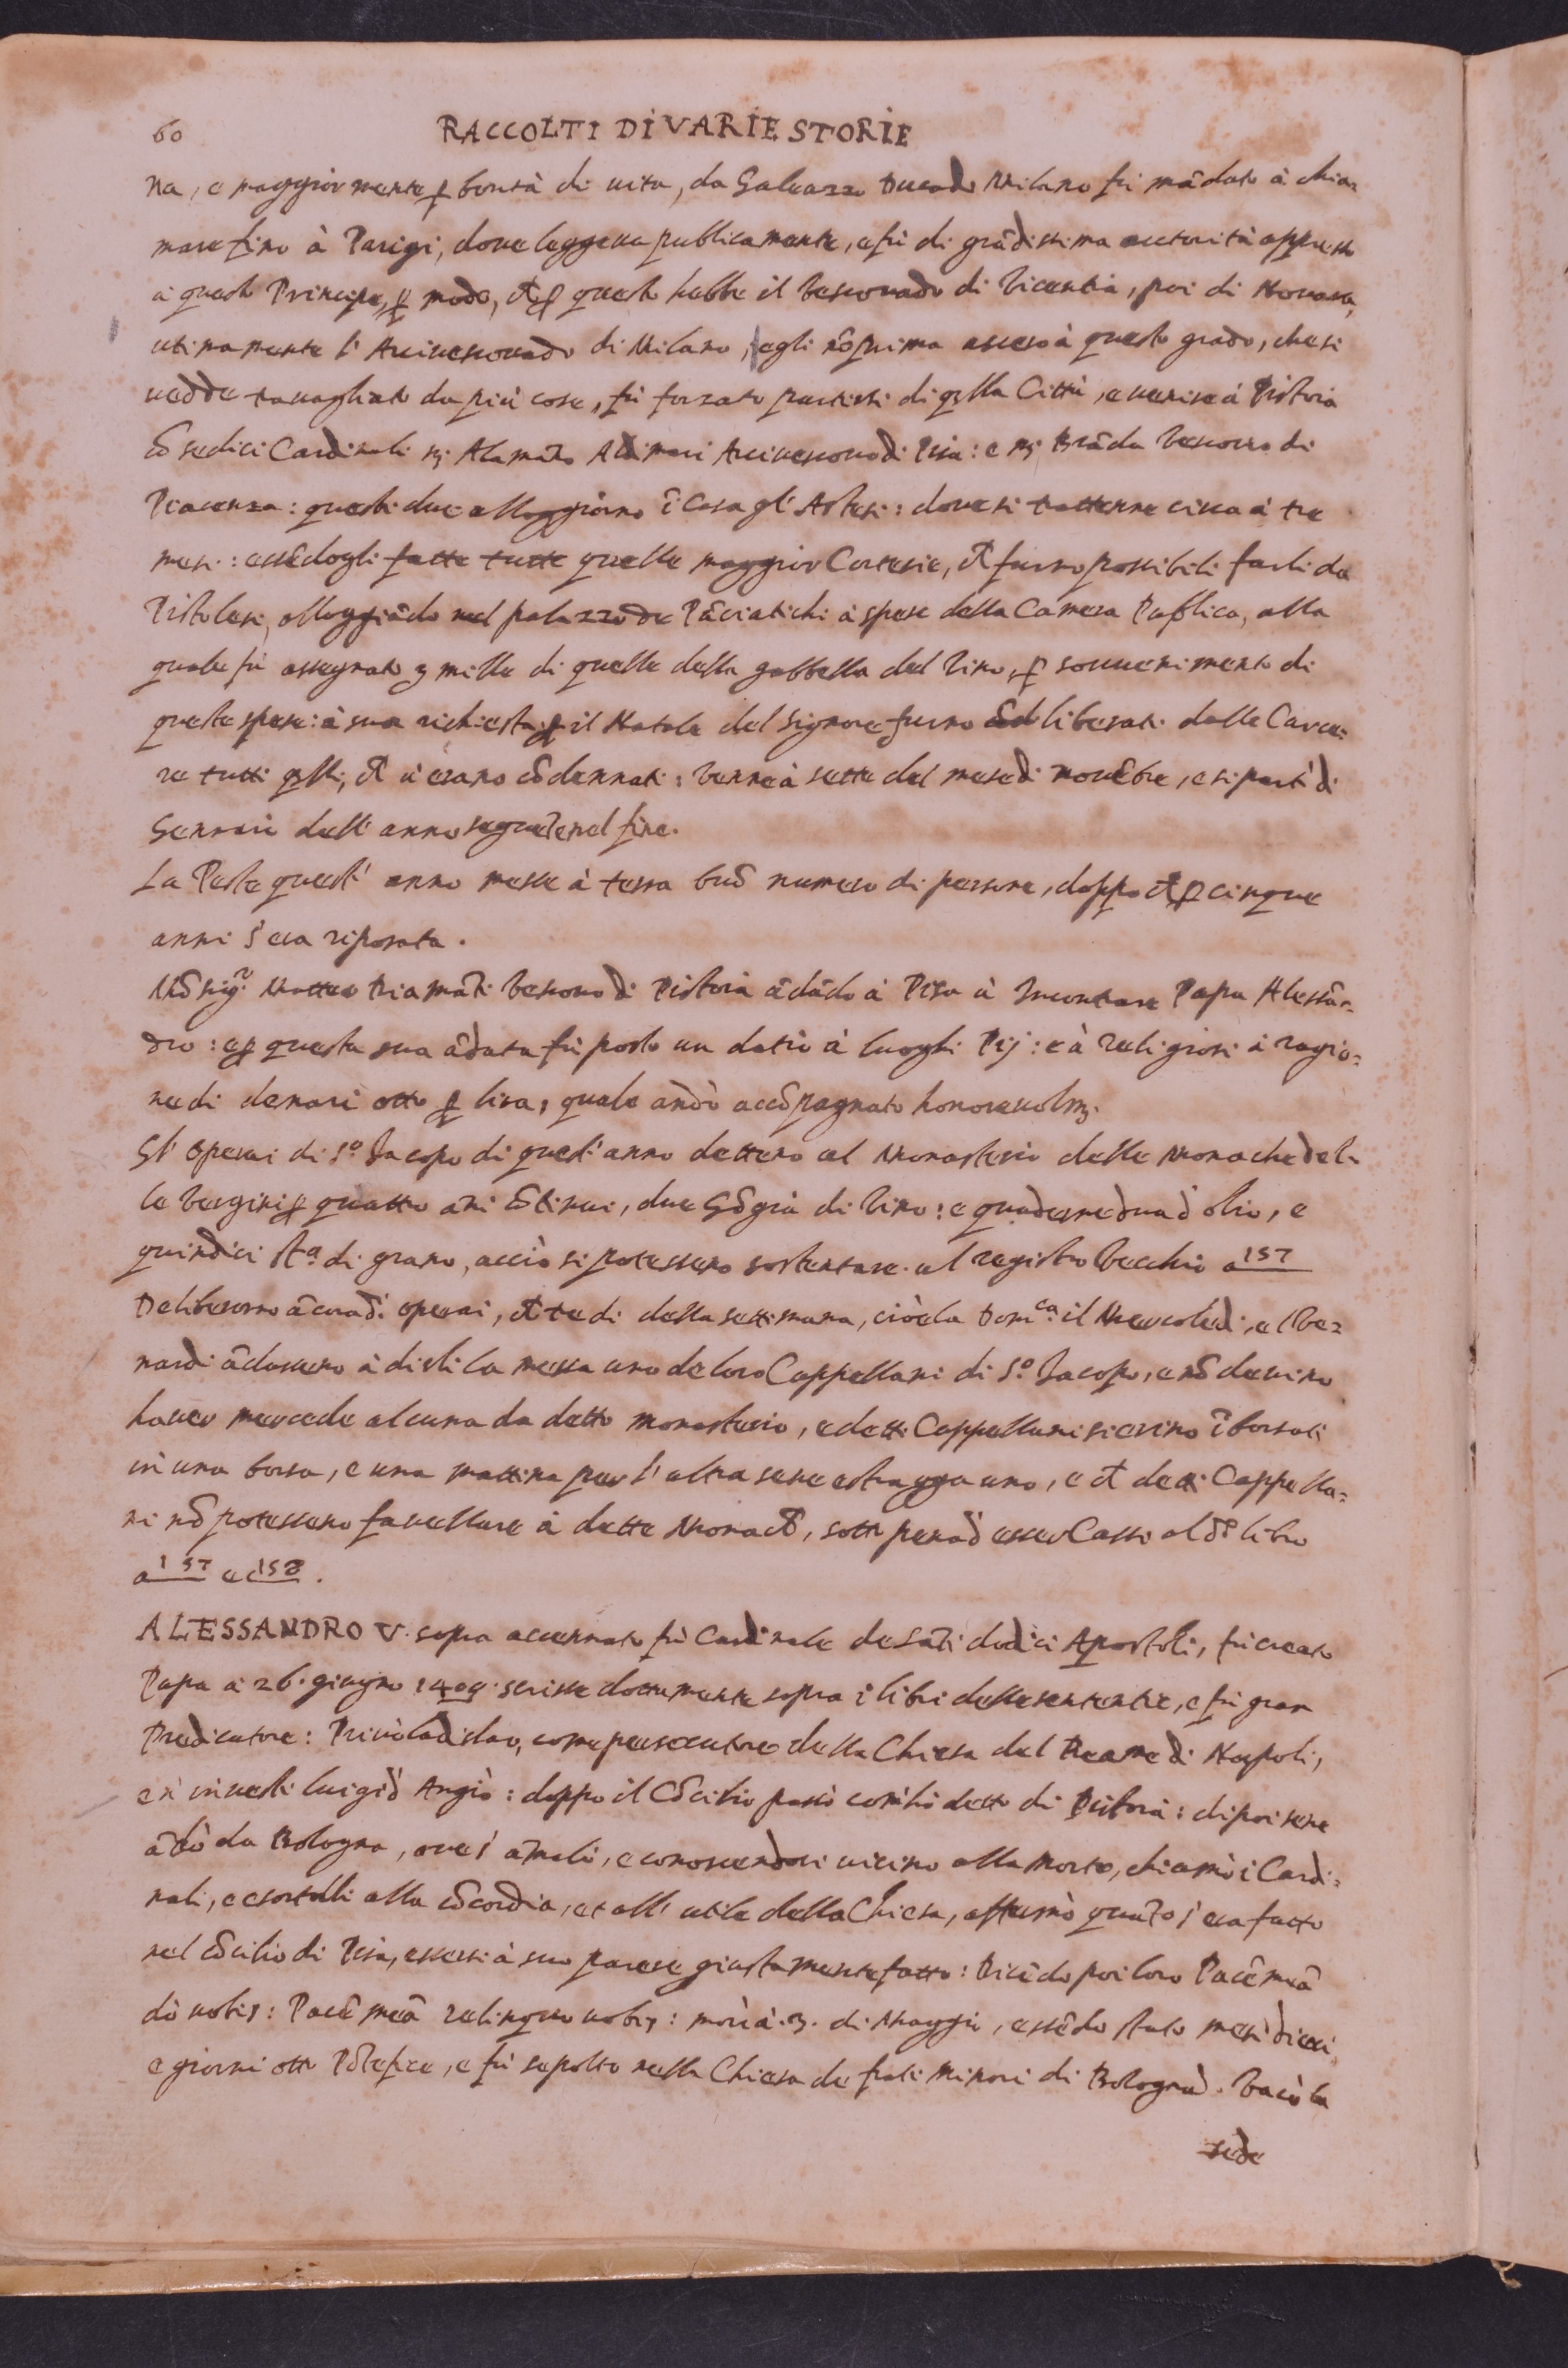 60 RACCOLTI DI VARIE STORIE
na, e maggior mente ꝑ bontà di uita, da Galeazzo Duca di Milano fù mādato à chia=
mare fino à Parigi, doue leggeua publicamente, e fù di grādissima autorità appresso
à questo Principe, ꝑ modo, cħ ꝑ questo hebbe il Vescouado di Vicentia, poi di Nouara,
utimamente l'Arciuescouado di Milano, egli nō prima asceso à questo grado, che si
uedde trauagliato da più cose, fù forzato partirsi di qlla Città, e uenise à Pistoia
cō sedici Cardinali Mr Alamāno Adimari Arciuescouo di Pisa: e Mr Brāda Vescouo di
Piacenza: questi due alloggiorno ī casa gl'Astesi: doue si trattenne circa à tre
mesi: essēdogli fatte tutte quelle maggior Cortesie, cħ furno possibili farli da
Pistolesi, alloggiādo nel palazzo de Pāciatichi à spese della Camera Publica, alla
quale fù assegnato 3 mille di quelle della gabbella del Vino, ꝑ souuenimento di
queste spese: à sua richiesta ꝑ il Natale del Signore furno liberati dalle Carce=
re tutti qlli, cħ u'erano cōdennati: Venne à sette del mese di nouēbre, e si partì di
Gennaio dell'anno seguēte nel fine.
La Peste quest'anno messe à terra buō numero di persone, doppo cħ ꝑ cinque
anni s'era riposata.
Mōsigr. Matteo Diamāti Vescouo di Pistoia ādādo à Pisa à Incontrare Papa Alessā=
dro: e ꝑ questa sua ādata fù posto un datio à luoghi Pij: e à Religiosi à ragio=
ne di denari otto ꝑ lira, quale andò accōpagnato honoreuolm.
Gl'Operai di So. Jacopo di quest'anno dettero al Monasterio delle Monache del=
le Vergini ꝑ quattro āni cōtinui, due Cōgia di Vino: e quaderne dua d'olio, e
quindici sta. di grano, acciò si potessero sostentare. al registro Vecchio a 157
Deliberorno ācora di operai, cħ tre dì della settimana, cioè la Domca. il Mercoledi, e l Ve=
nardi ādassero à dirli la messa uno de loro Cappellani di So. Jacopo, e nō deuino
hauer mercede alcuna da detto monasterio, e detti Cappellani sieino īborsati
in una borsa, e una mattina per l'altra sene estragga uno, e cħ detti Cappella=
ni nō potessero fauellare à dette Monacħ, sotto pena d'esser Cassi al do libro
a 157 e c 158.
ALESSANDRO V. sopra accennato fù Cardinale de Sāti dodici Apostoli, fù creato
Papa à 26. giugno 1409. scrisse dottamente sopra i libri delle sententie, e fù gran
Predicatore: Priuò Ladislao, come persecutore della Chiesa del Reame di Napoli,
e n'inuestì Luigi d'Angiò: doppo il Cōcilio passò com'hò detto di Pistoia: dipoi sene
ādò da Bologna, oue s'āmalò, e conoscendosi uicino alla morte, chiamò i Cardi=
nali, e esortolli alla cōcordia, et all'utile della Chiesa, affermò quāto s'era fatto
nel cōcilio di Pisa, essersi à suo parere giustamente fatto: Dicēdo poi loro Pacē meā
dò uobis: Pacē meā relinquo uobis: morì à. 3. di Maggio, essēdo stato mesi dieci,
e giorni otto Pōtefice, e fù sepolto nella Chiesa de frati Minori di Bologna. Vacò la
sede